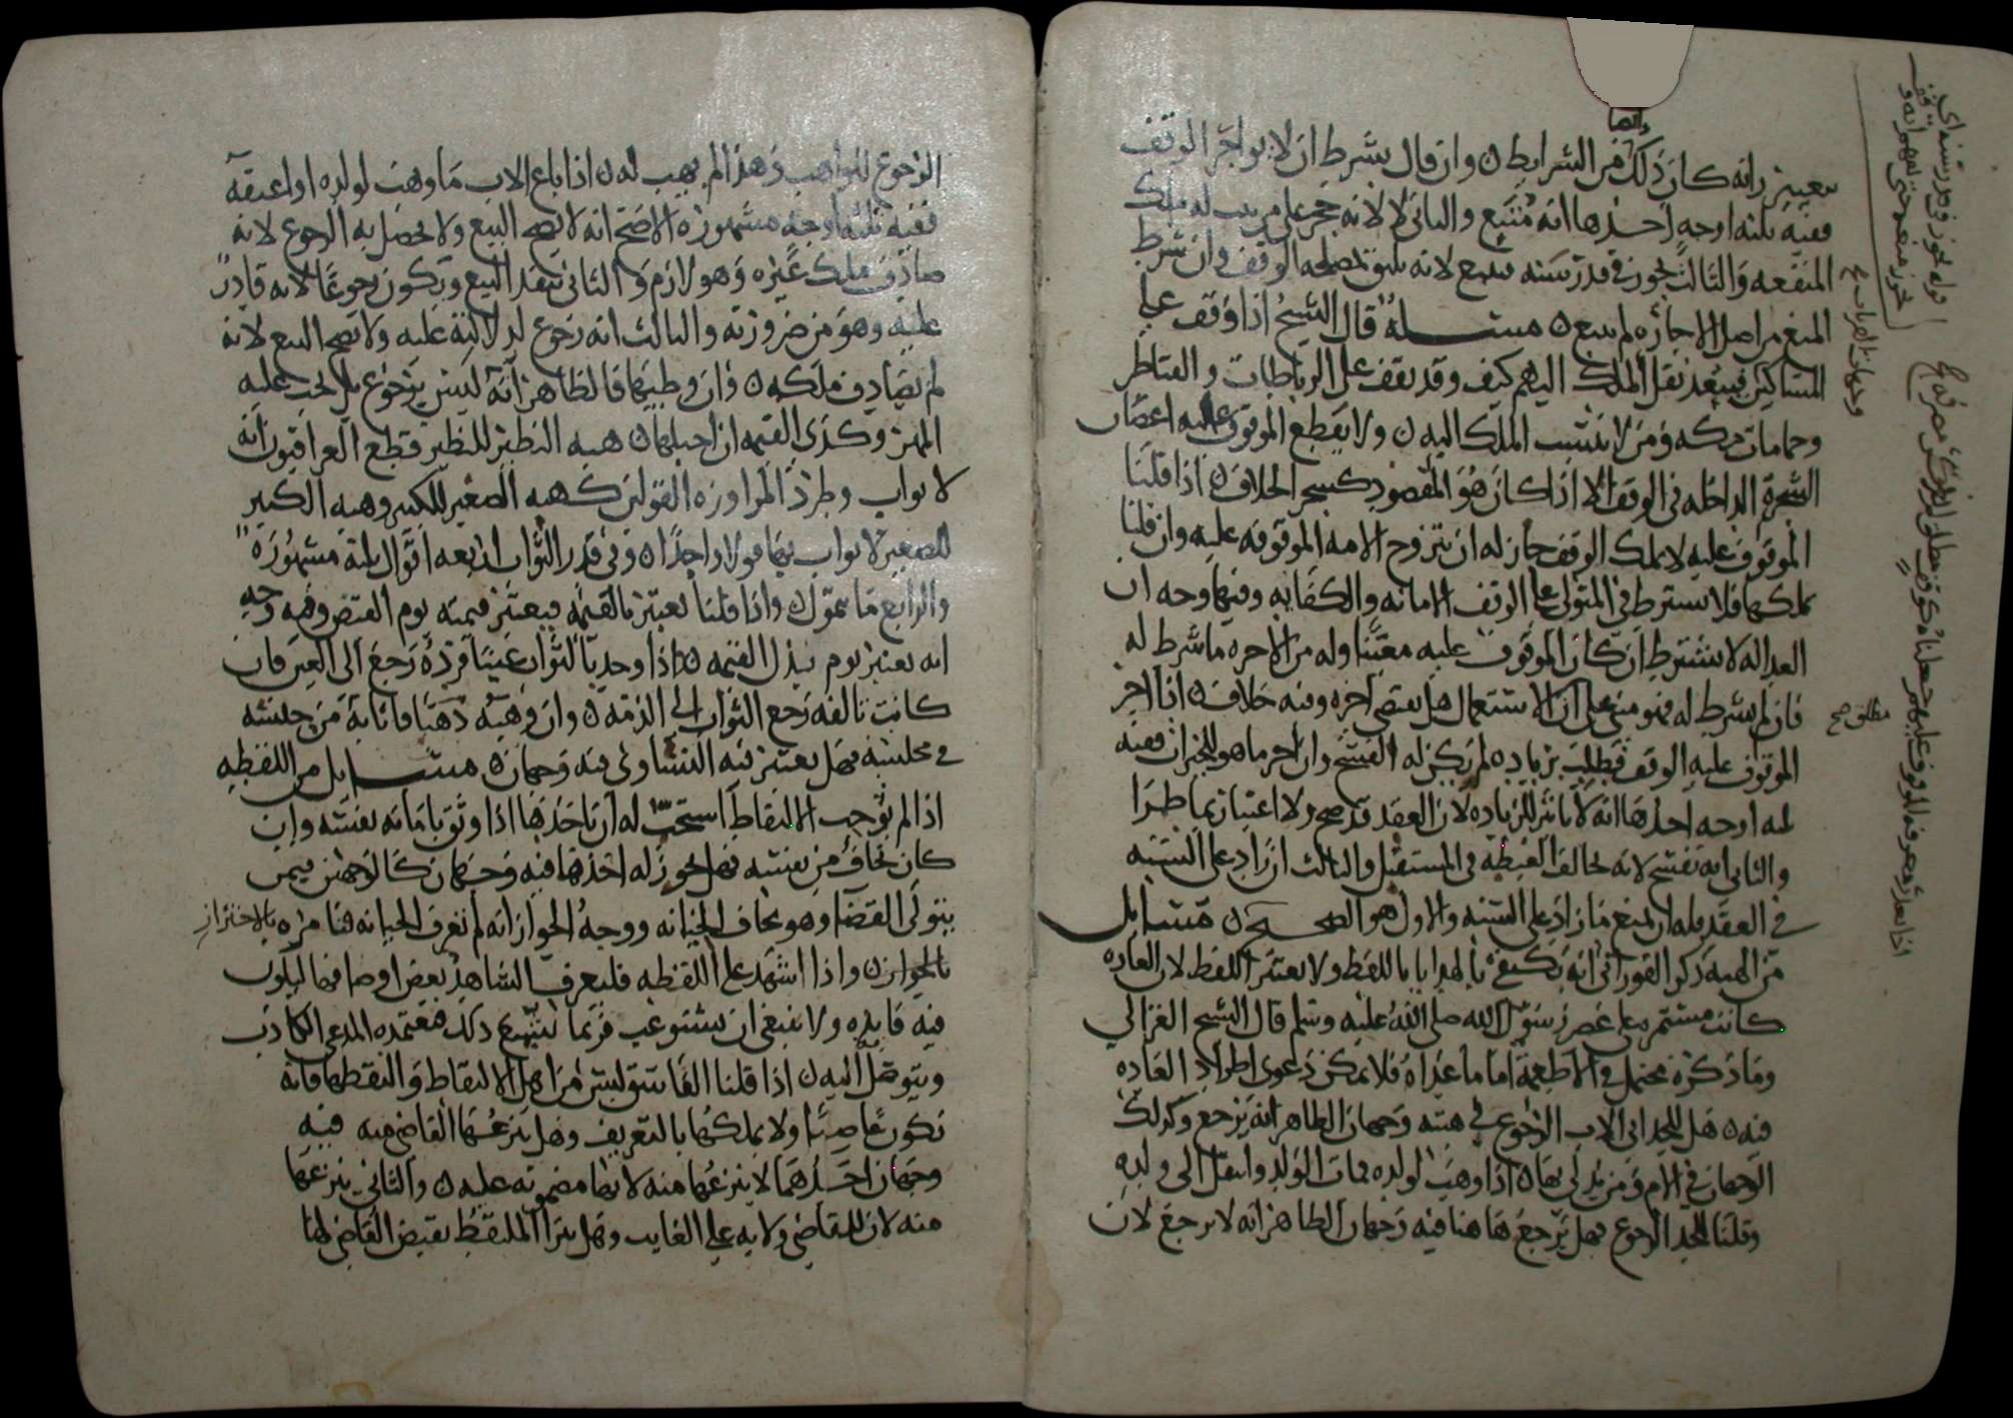 بتعيين رانه كان ذلك من الشرايط وان قال بشرط ان لا يواجر الوقف
ففيه ثلثه اوجه احدها انه متبع والثانى لا لانه حجر على من يثبت له ملك
المنفعه والثالث يجوز فى قدر سنه فيتبع لانه يليق بمصلحه الوقف وان شرط
المنع من اصل الاجاره لم يتبع مسئلة قال الشيخ اذا وقف على
المساكين فيبعد نقل الملك اليهم كيف وقد يقف على الرباطات والقناطر
وحمامات مكه ومن لا ينسب الملك اليه ولا يقطع الموقوف عليه اغصان
الشجرة الداخله فى الوقف الا اذا كان هو المقصود كشجر الخلاف اذا قلنا
الموقوف عليه لا يملك الوقف جاز له ان يتزوج الامه الموقوفه عليه وان قلنا
يملكها فلا يشترط فى المتولى على الوقف الامانه والكفايه وفيها وجه ان
العداله لا تشترط ان كان الموقوف عليه معينا وله من الاجره ما شرط له
فان لم يشرط له فهو مبنى على ان الاستعمال هل يقتضى اجره وفيه خلاف اذا اجر
الموقوف عليه الوقف فطلب بزياده لم يكن له الفسخ وان اجر ما هو للجيران ففيه
ثلثه اوجه احدها انه لا تاثير للزياده لان العقد قد صح ولا اعتبار بما طرا
والثانى انه تفسخ لانه يخالف الغبطه فى المستقبل والثالث ان زاد على السنه
فى العقد فله ان يمنع ما زاد على السنه والاول هو الصحيح مسايل
من الهبه ذكر الفورانى انه يكتفى فى الهدايا باللفظ ولا يعتبر اللفظ لان العاده
كانت مستمره على عصر رسول الله صلى الله عليه وسلم قال الشيخ الغزالى
وما ذكره محتمل فى الاطعمة اما ما عداه فلا يمكن دعوى اطراد العاده
فيه هل للجد ابى الاب الرجوع فى هبته وجهان الظاهر انه يرجع وكذلك
الوجهان فى الام ومن يدلى بها اذا وهب لولده فمات الولد وانتقل الى ولده
وقلنا للجد الرجوع فهل يرجع هاهنا فيه وجهان الظاهر انه لا يرجع لان
مطلق صح
الرجوع للواهب وهذا لم يهب له اذا باع الاب ما وهب لولده او اعتقه
ففيه ثلثه اوجه مشهوره الاصح انه لا يصح البيع ولا يحصل به الرجوع لانه
صادف ملك غيره وهو لازم والثانى ينفذ البيع ويكون رجوعا لانه قادر
عليه وهو من ضرورته والثالث انه رجوع لدلالته عليه ولا يصح البيع لانه
لم يصادف ملكه وان وطيها فالظاهر انه ليس برجوع بل يجب عليه
المهر وكذى القيمه ان احبلها هبه النظير للنظير قطع العراقيون انه
لا ثواب وطرد المراوزه القولين كهبه الصغير للكبير وهبه الكبير
للصغير لا ثواب فيها قولا واحدا وفى قدر الثواب اربعه اقوال ثلثة مشهورة
والرابع ما يتمول واذا قلنا يعتبر بالقيمه فيعتبر قيمته يوم القبض وفيه وجه
انه يعتبر يوم بذل القيمه اذا وجد بالثواب عيبا فرده رجع الى العين فان
كانت تالفه رجع الثواب الى الذمه وان وهبه ذهبا فاثابه من جنسه
فى مجلسه فهل يعتبر فيه التساوى فيه وجهان مسايل من اللقطه
اذا لم نوجب الالتقاط استحب له ان ياخذها اذا وثق بامانه نفسه وان
كان يخاف من نفسه فهل يجوز له اخذها فيه وجهان كالوجهين فيمن
يتولى القضا وهو يخاف الخيانه ووجه الجواز انه لم تعرف الخيانه فنامره بالاحتراز
بالجواز واذا اشهد على اللقطه فليعرف الشاهد بعض اوصافها ليكون
فيه فايده ولا ينبغى ان يستوعب فربما يشيع ذلك فيعتمده المدعى الكاذب
ويتوصل اليه اذا قلنا الفاسق ليس من اهل الالتقاط والتقطها فانه
يكون غاصبا ولا يملكها بالتعريف وهل ينزعها القاضى منه فيه
وجهان احدهما لا ينزعها منه لانها مضمونه عليه والثانى ينزعها
منه لان للقاضى ولايه على الغايب وهل يبرا الملتقط بقبض القاضى لها